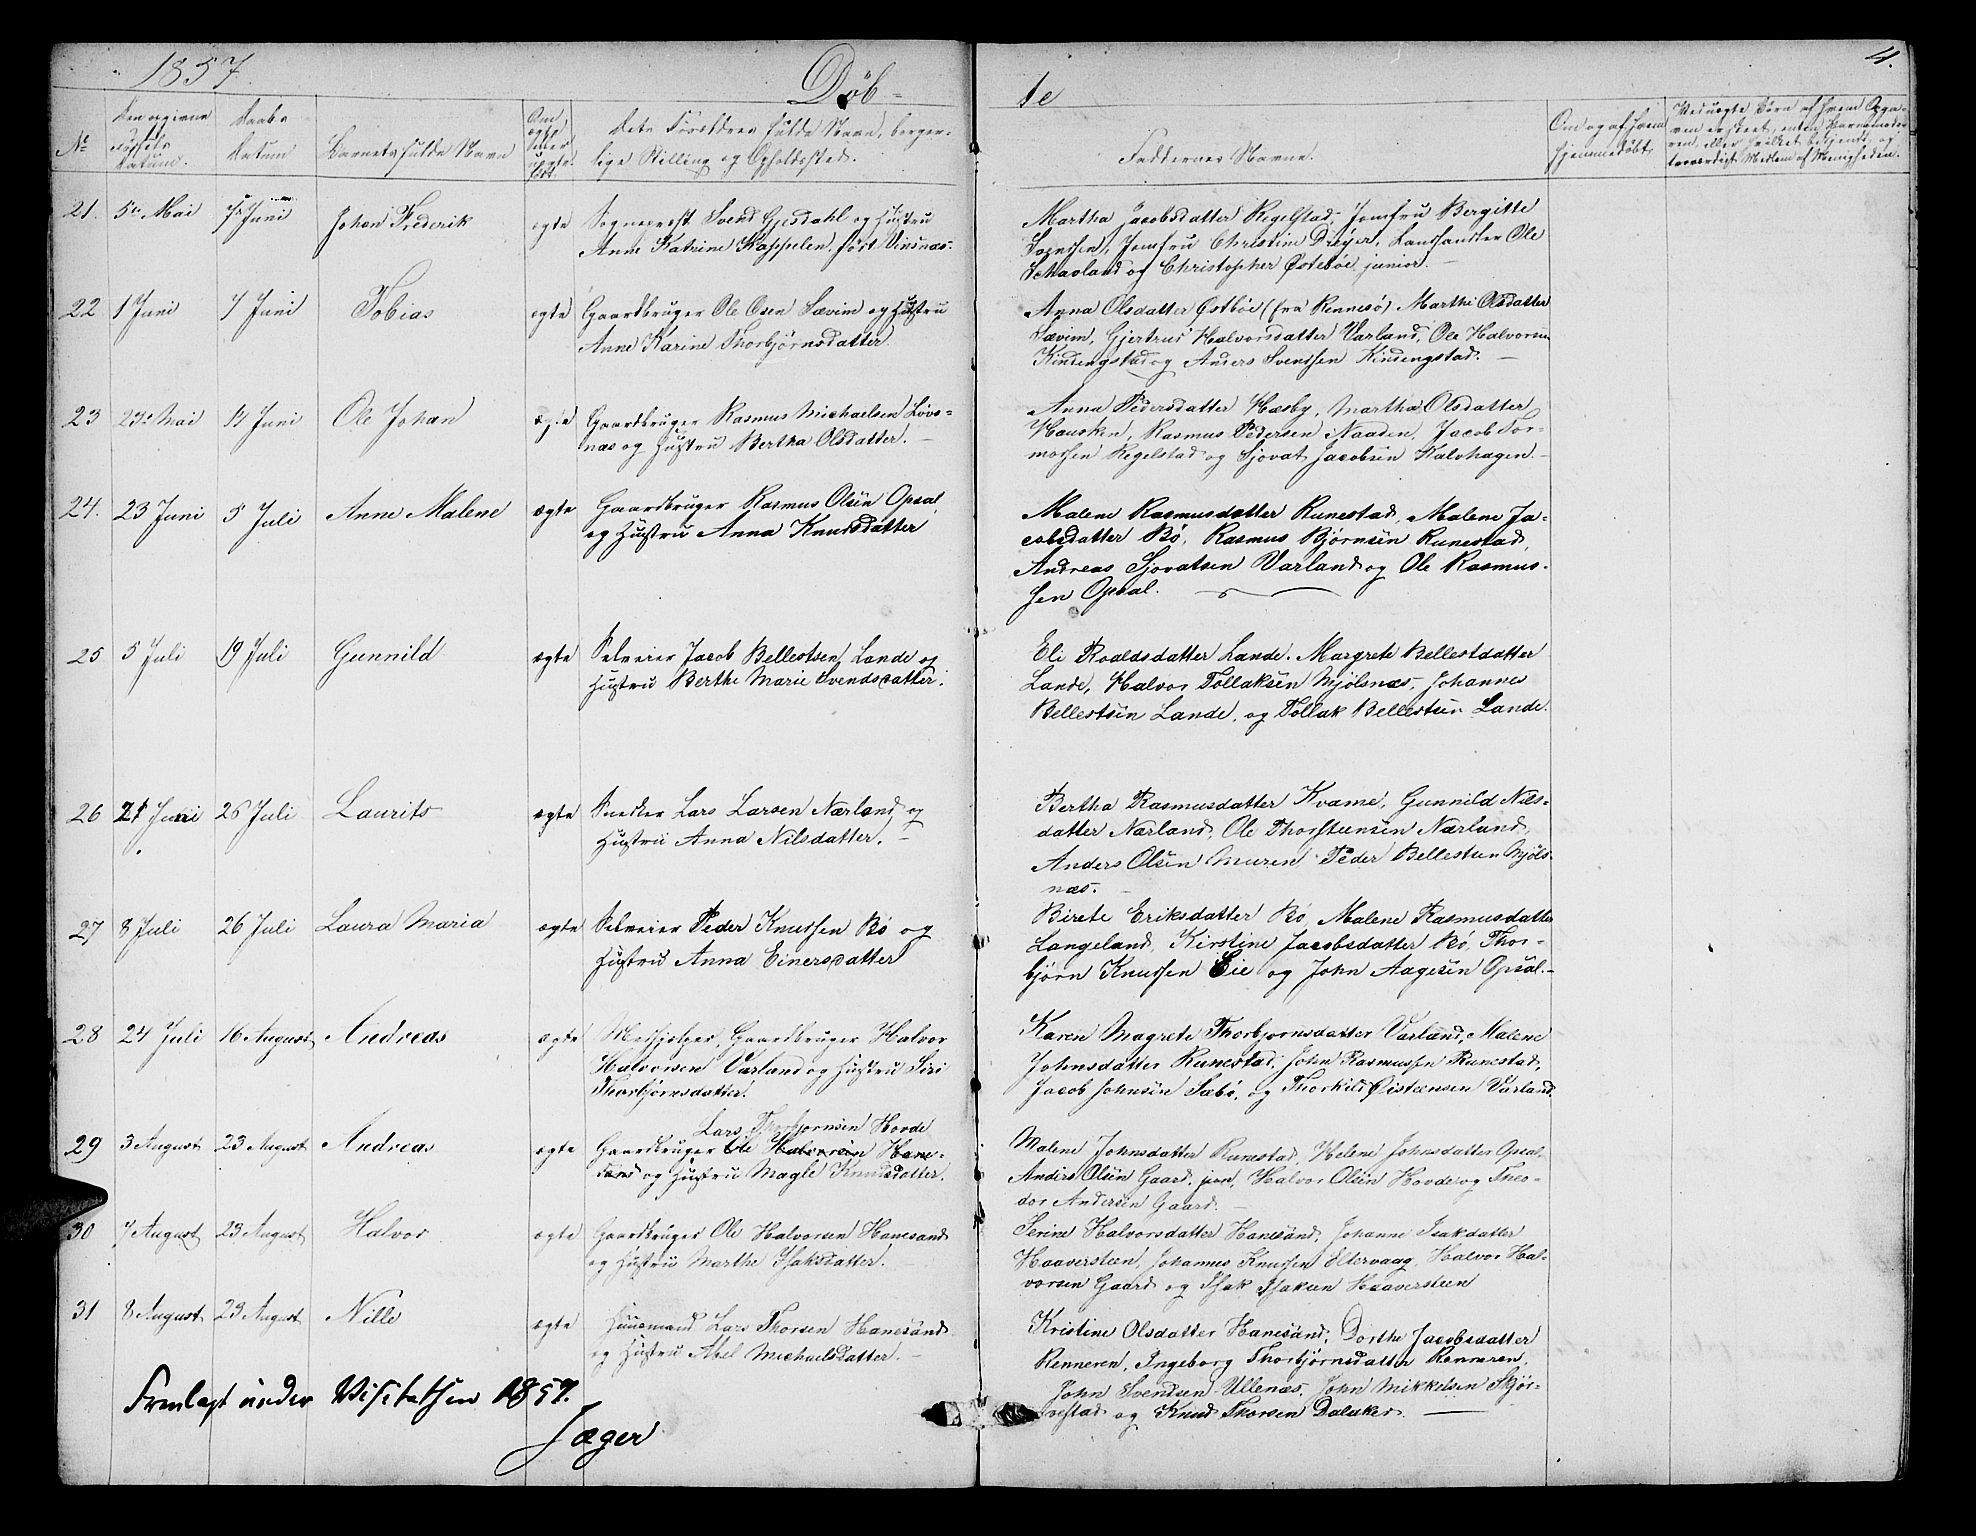 1857.
Døb-
te
4.
No
Den opgivne Fødsels Datum.
Daabs Datum
Barnets fulde Navn
Om ægte eller uægte født.
Dets Forældres fulde Navn, borgerlige Stilling og Opholdssted.
Faddernes Navne.
Om og af hvem hjemmedøbt
Ved uægte Børn af hvem Opgaven er skeet, enten Barnemoderen, eller hvilket bekjendt og troværdigt Medlem af Menigheden.
21. 5te Mai 7 Juni Johan Frederik ægte Sogneprest Svend Gjesdahl og Hustru
Anne Katrine Kappelen, født Vinsnæs.
Martha Jacobsdatter Regelstad, Jomfru Bergitte
Svensen, Jomfru Christine Dreyer, Landhandler Ole
Schavland og Christopher Østebøe junior.
22 1 Juni 7 Juni Tobias ægte Gaardbruger Ole Osen Sævim og Hustru
Anne Karine Thorbjørnsdatter
Anna Olsdatter Østbøe (fra Rennesø) Marthe Olsdatter
Sævim, Gjertrud Halvorsdatter Varland, Ole Halvorsen
Kindengstad og Anders Svendsen Kindengstad. —
23 23de Mai 14 Juni Ole Johan ægte Gaardbruger Rasmus Michaelsen Løvs-
næs og Hustru Bertha Olsdatter. —
Anna Pedersdatter Hæsby, Martha Olsdatter
Hausken, Rasmus Pedersen Naaden, Jacob Tor-
mossen Regelstad og Sjovat Jacobsen Kalvhagen. —
24. 23 Juni 5 Juli Anne Malene ægte Gaardbruger Rasmus Olsen Opsal
og Hustru Anna Knudsdatter
Malene Rasmusdatter Runestad, Malene Ja-
cobsdatter Bø, Rasmus Bjørnsen Runestad,
Andreas Sjovatsen Varland og Ole Rasmus-
sen Opsal.
25 5 Juli 19 Juli Gunnild ægte Selveier Jacob Bellestsen Lande og
Hustru Berthe Marie Svendsdatter.
Eli Roaldsdatter Lande. Margrete Bellestdatter
Lande, Halvor Tollaksen Mjølsnæs, Johannes
Bellestsen Lande, og Tollak Bellestsen Lande.
26 21 Juni 26 Juli Laurits ægte Snedker Lars Larsen Nærland og
Hustru Anna Nilsdatter. —
Bertha Rasmusdatter Kvame, Gunnild Nils-
datter Nærland, Ole Thorsteensen Nærland,
Anders Olsen Muren Peder Bellestsen Mjøls-
næs.
27 8 Juli 26 Juli Laura Maria ægte Selveier Peder Knudsen Bø og
Hustru Anna Einersdatter
Birete Eriksdatter Bø, Malene Rasmusdatter
Langeland, Kirstine Jacobsdatter Bø, Thor-
bjørn Knudsen Eie og John Aagesen Opsal. —
28 24 Juli 16 August Andreas ægte Medhjelper, Gaardbruger Halvor
Halvorsen Varland og Hustru Siri
Thorbjørnsdatter.
Karen Magrete Thorbjørnsdatter Varland, Malene
Johnsdatter Runestad, John Rasmussen Runestad,
Jacob Johnsen Sæbø, og Thorkild Øisteensen Varland.
Lars Thorbjornsen Hovde
29 3 August 23 August Andreas ægte Gaardbruger Ole Halvorsen Hane-
sand og Hustru Magle Knudsdatter.
Malene Johnsdatter Runestad, Helene Johnsdatter Opsal,
Anders Olsen Gaard, jun, Halvor Olsen Hovde og Theo-
dor Andersen Gaard. —
30 7 August 23 August Halvor ægte Gaardbruger Ole Halvorsen Hanesand
og Hustru Marthe Isaksdatter. —
Serine Halvorsdatter Hanesand, Johanne Isakdatter
Haaversteen, Johannes Knudsen Eltervaag, Halvor Hal-
vorsen Gaard og Isak Isaksen Haaversteen
31 8 August 23 August Nille ægte Huusmand Lars Thorsen Hanesand
og Hustru Abel Michaelsdatter. —
Kristine Olsdatter Hanesand, Dorthe Jacobsdatter
Renneren, Ingeborg Thorbjørnsdatter Renneren,
John Svendsen Ullenæs, John Mikkelsen Skjør-
vestad og Knud Thorsen Dalaker. —
Fremlagt under Visitatsen 1857.
Jæger